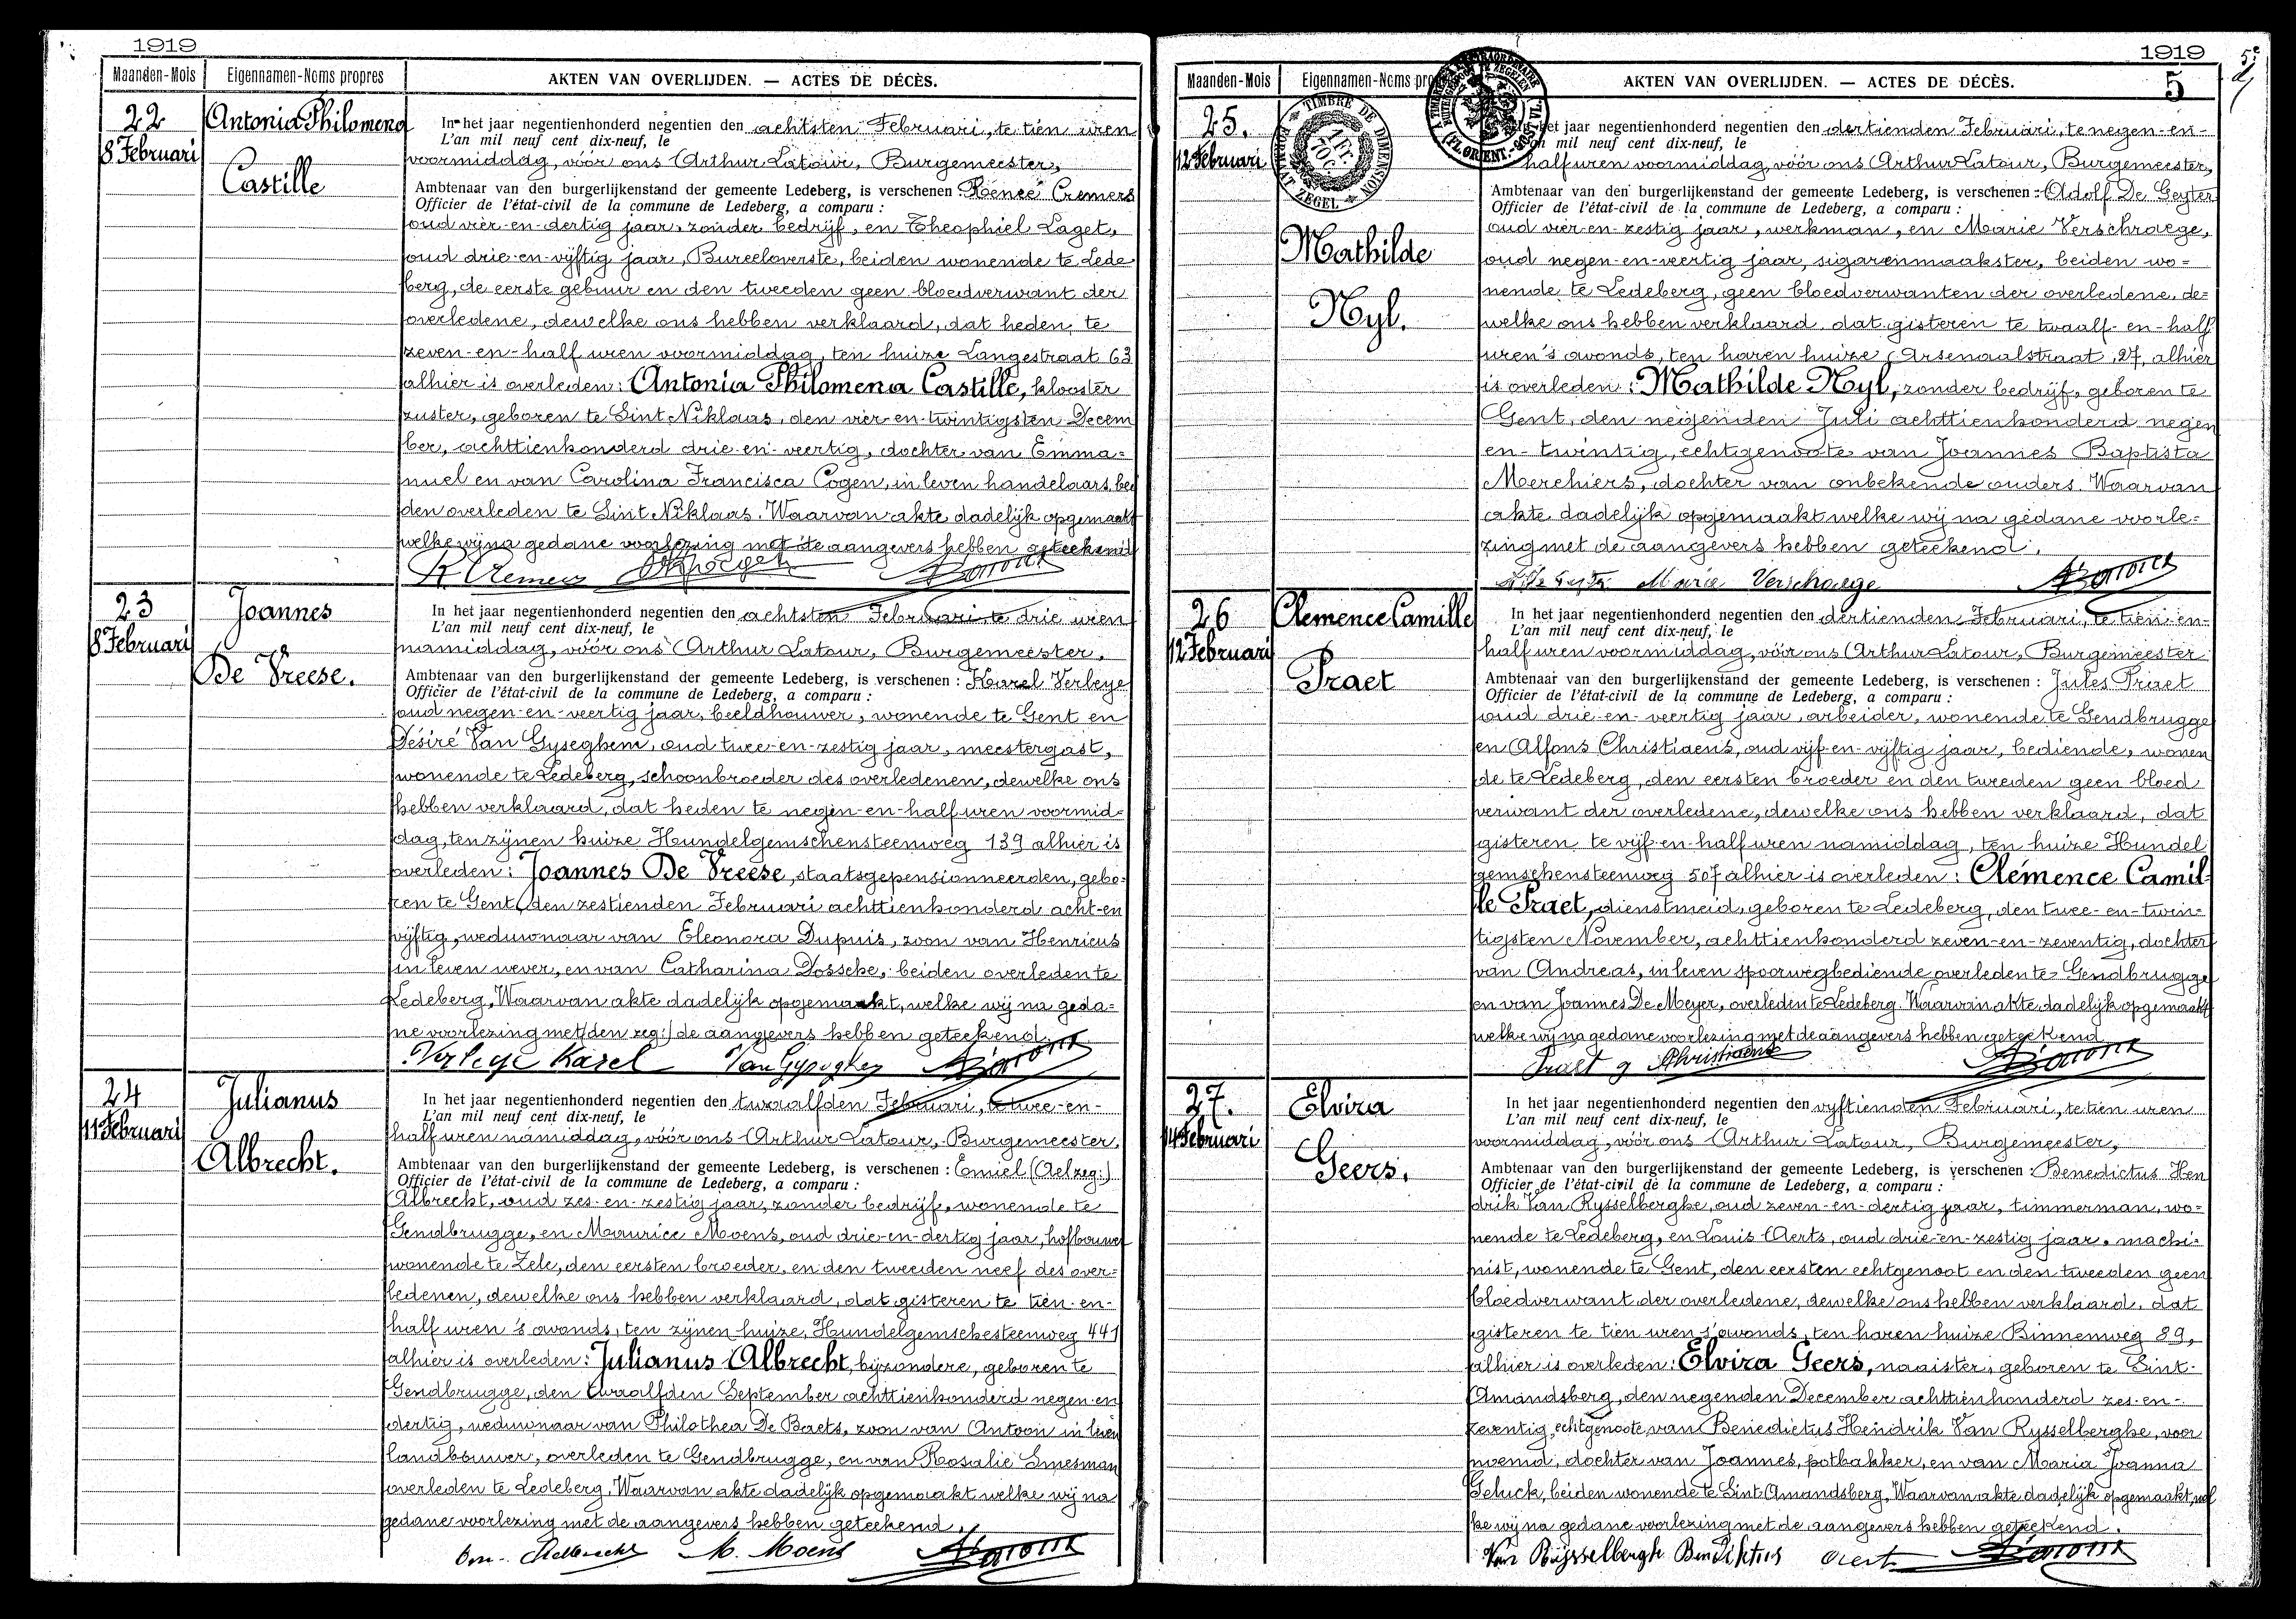 1919
Maanden-Mois
Eigennamen-Noms propres
AKTEN VAN OVERLIJDEN. — ACTES DE DÉCÈS.
22
8 Februari
Antonia Philomena
Castille
In het jaar negentienhonderd negentien den achtsten Februari, te tien uren
L'an mil neuf cent dix-neuf, le
voormiddag, vóór ons Arthur Latour, Burgemeester,
Ambtenaar van den burgerlijkenstand der gemeente Ledeberg, is verschenen : Renée Cremers
Officier de l'état-civil de la commune de Ledeberg, a comparu :
oud vier-en-dertig jaar, zonder bedrijf, en Theophiel Laget,
oud drie-en-vijftig jaar, Bureeloverste, beiden wonende te Lede
berg, de eerste gebuur en den tweeden geen bloedverwant der
overledene, dewelke ons hebben verklaard, dat heden te
zeven-en-half uren voormiddag, ten huize Langestraat 63
alhier is overleden: Antonia Philomena Castille, klooster
zuster, geboren te Sint Niklaas, den vier-en-twintigsten Decem
ber, achttienhonderd drie-en-veertig, dochter van Emma=
nuel en van Carolina Francisca Cogen, in leven handelaars, bei
den overleden te Sint Niklaas. Waarvan akte dadelijk opgemaakt
welke wij na gedane voorlezing met de aangevers hebben geteekend
R Cremers
23
8 Februari
Joannes
De Vreese.
In het jaar negentienhonderd negentien den achtsten Februari te drie uren
L'an mil neuf cent dix-neuf, le
namiddag, vóór ons Arthur Latour, Burgemeester,
Ambtenaar van den burgerlijkenstand der gemeente Ledeberg, is verschenen : Karel Verleye
Officier de l'état-civil de la commune de Ledeberg, a comparu :
oud negen-en-veertig jaar, beeldhouwer, wonende te Gent en
Désiré Van Gyseghem, oud twee-en-zestig jaar, meestergast,
wonende te Ledeberg, schoonbroeder des overledenen, dewelke ons
hebben verklaard, dat heden te negen-en-half uren voormid=
dag, ten zijnen huize Hundelgemschensteenweg 139 alhier is
overleden: Joannes De Vreese, staatsgepensionneerden, gebo=
ren te Gent, den zestienden Februari achttienhonderd acht-en
vijftig, weduwnaar van Eleonora Dupuis, zoon van Henricus
in leven wever, en van Catharina Dossche, beiden overleden te
Ledeberg, Waarvan akte dadelijk opgemaakt, welke wij na geda=
ne voorlezing met (den zeg:) de aangevers hebben geteekend.
Verleye Karel Van Gyseghem
24
11 Februari
Julianus
Albrecht.
In het jaar negentienhonderd negentien den twaalfden Februari, te twee-en-
L'an mil neuf cent dix-neuf, le
half uren namiddag, vóór ons Arthur Latour, Burgemeester,
Ambtenaar van den burgerlijkenstand der gemeente Ledeberg, is verschenen : Emiel (Ael zeg:)
Officier de l'état-civil de la commune de Ledeberg, a comparu :
Albrecht, oud zes-en-zestig jaar, zonder bedrijf, wonende te
Gendbrugge, en Maurice Moens, oud drie-en-dertig jaar, hofbouwer
wonende te Zele, den eersten broeder, en den tweeden neef des over=
ledenen, dewelke ons hebben verklaard, dat gisteren te tien-en-
half uren 's avonds, ten zijnen huize, Hundelgemschesteenweg 441
alhier is overleden: Julianus Albrecht, bijzondere, geboren te
Gendbrugge, den twaalfden September achttienhonderd negen-en
dertig, weduwnaar van Philothea De Baets, zoon van Antoon in leven
landbouwer, overleden te Gendbrugge, en van Rosalie Smesman
overleden te Ledeberg. Waarvan akte dadelijk opgemaakt welke wij na
gedane voorlezing met de aangevers hebben geteekend.
M. Moens
1919
5
Maanden-Mois
Eigennamen-Noms propres
AKTEN VAN OVERLIJDEN. — ACTES DE DÉCÈS.
TIMBRE DE DIMENSION
FORMAAT ZEGEL
1 Fr. 70 c.
(FLORIENT.-9051
25.
12 Februari
Mathilde
Nyl.
In het jaar negentienhonderd negentien den dertienden Februari, te negen-en-
L'an mil neuf cent dix-neuf, le
half uren voormiddag, vóór ons Arthur Latour, Burgemeester,
Ambtenaar van den burgerlijkenstand der gemeente Ledeberg, is verschenen : Adolf De Geyter
Officier de l'état-civil de la commune de Ledeberg, a comparu :
oud vier-en-zestig jaar, werkman, en Marie Verschraege,
oud negen-en-veertig jaar, sigarenmaakster, beiden wo=
nende te Ledeberg, geen bloedverwanten der overledene, de=
welke ons hebben verklaard dat gisteren te twaalf-en-half
uren 's avonds, ten haren huize, Arsenaalstraat 27, alhier
is overleden: Mathilde Nyl, zonder bedrijf, geboren te
Gent, den negenden Juli achttienhonderd negen
en-twintig, echtgenoote van Joannes Baptista
Merchiers, dochter van onbekende ouders. Waarvan
akte dadelijk opgemaakt welke wij na gedane voorle=
zing met de aangevers hebben geteekend.
Marie Verschraege
26
12 Februari
Clemence Camille
Praet
In het jaar negentienhonderd negentien den dertienden Februari, te tien-en-
L'an mil neuf cent dix-neuf, le
half uren voormiddag, vóór ons Arthur Latour, Burgemeester
Ambtenaar van den burgerlijkenstand der gemeente Ledeberg, is verschenen : Jules Praet
Officier de l'état-civil de la commune de Ledeberg, a comparu :
oud drie-en-veertig jaar, arbeider, wonende te Gendbrugge
en Alfons Christiaens, oud vijf-en-vijftig jaar, bediende, wonen
de te Ledeberg, den eersten broeder en den tweeden geen bloed
verwant der overledene, dewelke ons hebben verklaard, dat
gisteren te vijf-en-half uren namiddag, ten huize Hundel
gemschensteenweg 507 alhier is overleden: Clémence Camil-
le Praet, dienstmeid, geboren te Ledeberg, den twee-en-twin=
tigsten November, achttienhonderd zeven-en-zeventig, dochter
van Andreas, in leven spoorwegbediende overleden te Gendbrugge
en van Joannes De Meyer, overleden te Ledeberg. Waarvan akte dadelijk opgemaakt
welke wij na gedane voorlezing met de aangevers hebben geteekend
Praet J Christiaens
27.
14 Februari
Elvira
Geers.
In het jaar negentienhonderd negentien den vijftienden Februari, te tien uren
L'an mil neuf cent dix-neuf, le
voormiddag, vóór ons Arthur Latour, Burgemeester,
Ambtenaar van den burgerlijkenstand der gemeente Ledeberg, is verschenen : Benedictus Hen
Officier de l'état-civil de la commune de Ledeberg, a comparu :
drik Van Rysselberghe, oud zeven-en-dertig jaar, timmerman, wo=
nende te Ledeberg, en Louis Aerts, oud drie-en-zestig jaar, machi=
nist, wonende te Gent, den eersten echtgenoot en den tweeden geen
bloedverwant der overledene, dewelke ons hebben verklaard, dat
gisteren te tien uren 's avonds, ten haren huize Binnenweg 89,
alhier is overleden: Elvira Geers, naaister, geboren te Sint-
Amandsberg, den negenden December achttienhonderd zes-en-
zeventig, echtgenoote van Benedictus Hendrik Van Rysselberghe, voor
noemd, dochter van Joannes, potbakker, en van Maria Joanna
Geluck, beiden wonende te Sint Amandsberg, Waarvan akte dadelijk opgemaakt, wel
ke wij na gedane voorlezing met de aangevers hebben geteekend.
Van Rijsselbergh Bendiktus Aerts